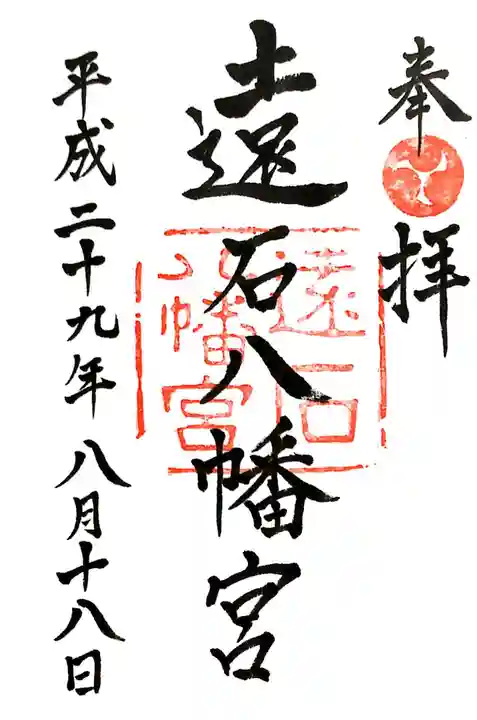 奉拝
遠石八幡宮
遠石
八幡宮
平成二十九年八月十八日